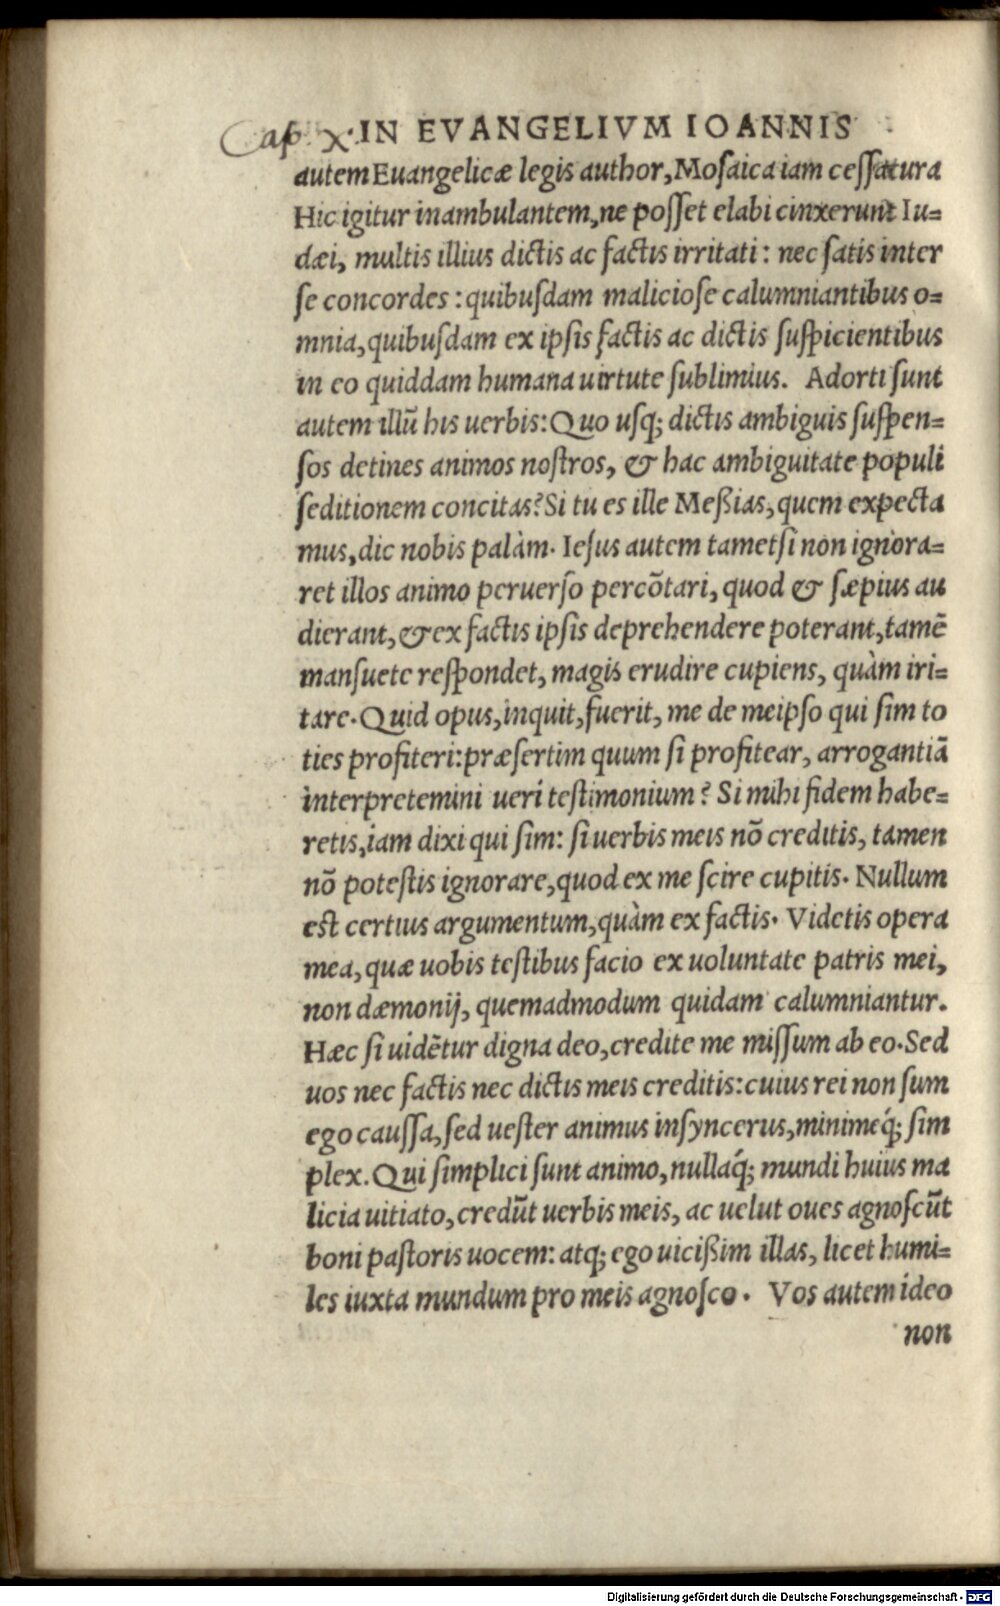 Cap. X. IN EVANGELIVM IOANNIS
autem Euangelicæ legis author, Mosaica iam cessatura
Hic igitur inambulantem, ne posset elabi cinxerunt Iu=
dæi, multis illius dictis ac factis irritati: nec satis inter
se concordes: quibusdam maliciose calumniantibus o=
mnia, quibusdam ex ipsis factis ac dictis suspicientibus
in eo quiddam humana uirtute sublimius. Adorti sunt
autem illũ his uerbis: Quo usq; dictis ambiguis suspen=
sos detines animos nostros, & hac ambiguitate populi
seditionem concitas? Si tu es ille Meßias, quem expecta
mus, dic nobis palàm. Iesus autem tametsi non ignora=
ret illos animo peruerso percõtari, quod & sæpius au
dierant, & ex factis ipsis deprehendere poterant, tamẽ
mansuete respondet, magis erudire cupiens, quàm iri=
tare. Quid opus, inquit, fuerit, me de meipso qui sim to
ties profiteri: præsertim quum si profitear, arrogantiã
interpretemini ueri testimonium? Si mihi fidem habe=
retis, iam dixi qui sim: si uerbis meis nõ creditis, tamen
nõ potestis ignorare, quod ex me scire cupitis. Nullum
est certius argumentum, quàm ex factis. Videtis opera
mea, quæ uobis testibus facio ex uoluntate patris mei,
non dæmonij, quemadmodum quidam calumniantur.
Hæc si uidẽtur digna deo, credite me missum ab eo. Sed
uos nec factis nec dictis meis creditis: cuius rei non sum
ego caussa, sed uester animus insyncerus, minimeq́; sim
plex. Qui simplici sunt animo, nullaq́; mundi huius ma
licia uitiato, credũt uerbis meis, ac uelut oues agnoscũt
boni pastoris uocem: atq; ego uicißim illas, licet humi=
les iuxta mundum pro meis agnosco. Vos autem ideo
non
Digitalisierung gefördert durch die Deutsche Forschungsgemeinschaft - DFG